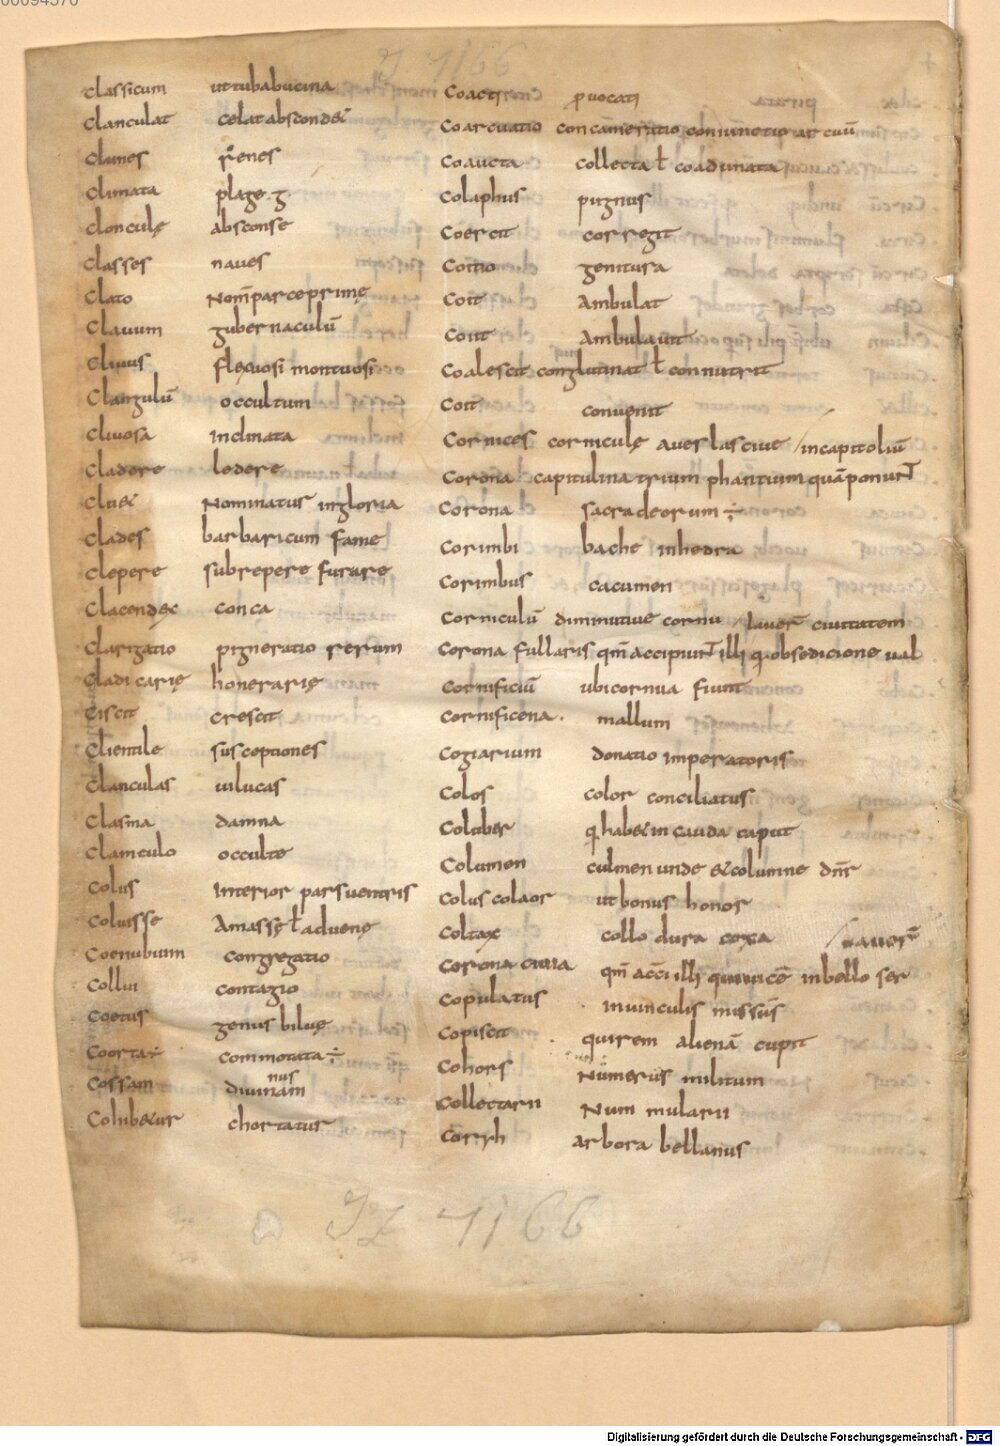 00094570
Classicum ut tuba bucina
Clanculat celat abscondet
Clunes renes
Climata plage .g.
Clonculę absconse
Classes naues
Clato Nom̄ parce prime
Clauum gubernaculū
Cliuus flexuosi montuosi
Clangulū occultum
Cliuosa Inclinata
Cladere ledere
Cluet Nominatus in gloria
Clades barbaricum fame
Clepere subrepere furare
Clacendex conca
Clarigatio pigneratio rerum
Cladicarię honerarię
Ciscit crescit
Clientile susceptiones
Clanculas uilucas
Clasma damna
Clamculo occulte
Colus Interior pars uentris
Coluisse Amasse ł aduenę
Coenubium congregatio
Collui contagio
Coetus genus biluę
Coorta ÷ commotata ÷
Cossam diuinam nus
Cohibetur chortatus
Coacti prouocati
Coarcuatio concameratio coniunctio arcuū
Coaucta collecta ł coadunata
Colaphus pugnus
Coercit corregit
Coitio genitura
Coit Ambulat
Coiit Ambulauit
Coalescit conglutinat ł connutrit
Coit conuenit
Cornices corniculę aues lasciue / in capitoliū
Corona capitulina trium phantium quā ponunt
Corona sacra deorum ÷
Corimbi bache in hedra
Corimbus cacumen
Corniculū diminutiue cornu / lauer̄ ciuitatem
Corona fullaris qm̄ accipiunt illi q obsedicione ual
Cornificiū ubi cornua fiunt
Cornificena. mallum
Cogiarium donatio imperatoris
Colos color conciliatus
Coluber q habet in cauda caput
Columen culmen unde et columne dn̄r
Colus colaor ut bonus honor
Coltax collo dura coxa
Corona ciuia qm̄ acc̄i illi qui in bello ser / uauer̄
Copulatus in uinculis missus
Copiscit quirem alienā cupit
Cohors Numerus militum
Collectarii Num mularii
Coryh arbora bellanus
JZ 4166
Digitalisierung gefördert durch die Deutsche Forschungsgemeinschaft - DFG